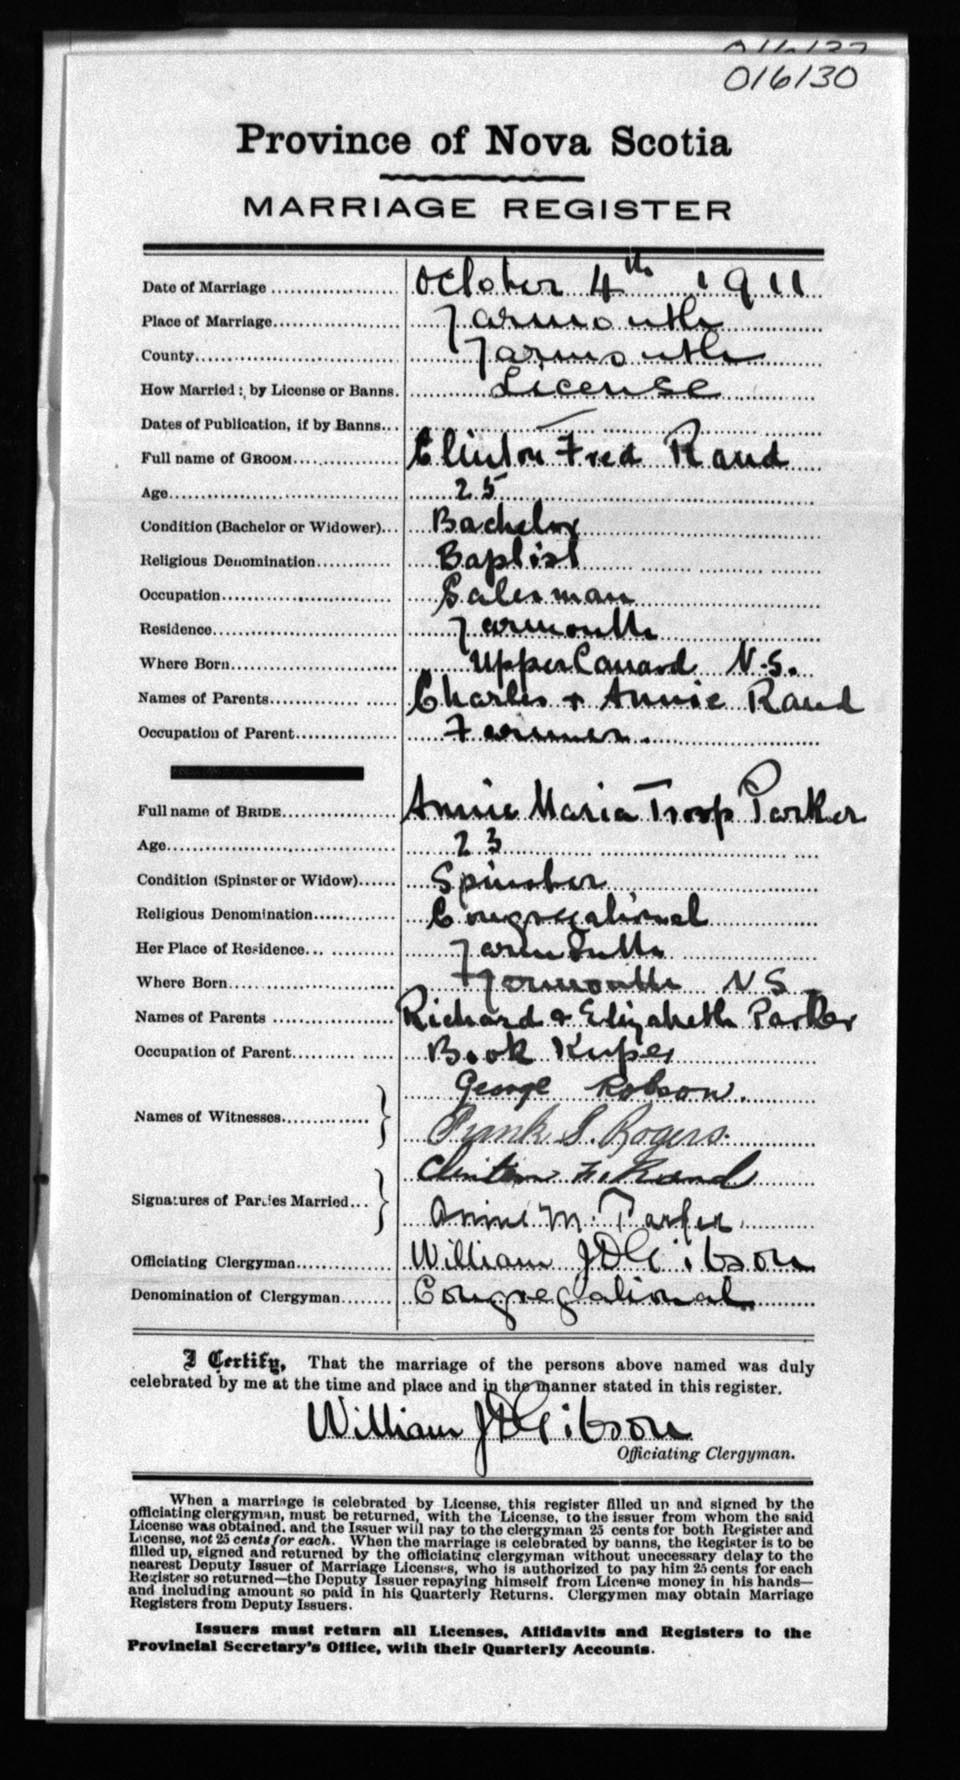 016130
Province of Nova Scotia
MARRIAGE REGISTER
Date of Marriage October 4th 1911
Place of Marriage Yarmouth
County Yarmouth
How Married: by License or Banns. License
Dates of Publication, if by Banns
Full name of GROOM Clinton Fred Rand
Age 25
Condition (Bachelor or Widower) Bachelor
Religious Denomination Baptist
Occupation Salesman
Residence Yarmouth
Where Born Upper Canard N.S.
Names of Parents Charles + Annie Rand
Occupation of Parent Farmer.
Full name of BRIDE Annie Maria Troop Parker
Age 23
Condition (Spinster or Widow) Spinster
Religious Denomination Congregational
Her Place of Residence Yarmouth
Where Born Yarmouth N S
Names of Parents Richard & Elizabeth Parker
Occupation of Parent Book Keeper
George Robson.
Names of Witnesses
Frank S. Rogers.
Clinton F. Rand
Signatures of Parties Married
Annie M. Parker
Officiating Clergyman William J D Gibson
Denomination of Clergyman Congregational
I Certify, That the marriage of the persons above named was duly
celebrated by me at the time and place and in the manner stated in this register.
William J D Gibson
Officiating Clergyman.
When a marriage is celebrated by License, this register filled up and signed by the
officiating clergyman, must be returned, with the License, to the issuer from whom the said
License was obtained, and the Issuer will pay to the clergyman 25 cents for both Register and
License, not 25 cents for each. When the marriage is celebrated by banns, the Register is to be
filled up, signed and returned by the officiating clergyman without unecessary delay to the
nearest Deputy Issuer of Marriage Licenses, who is authorized to pay him 25 cents for each
Register so returned—the Deputy Issuer repaying himself from License money in his hands—
and including amount so paid in his Quarterly Returns. Clergymen may obtain Marriage
Registers from Deputy Issuers.
Issuers must return all Licenses, Affidavits and Registers to the
Provincial Secretary's Office, with their Quarterly Accounts.